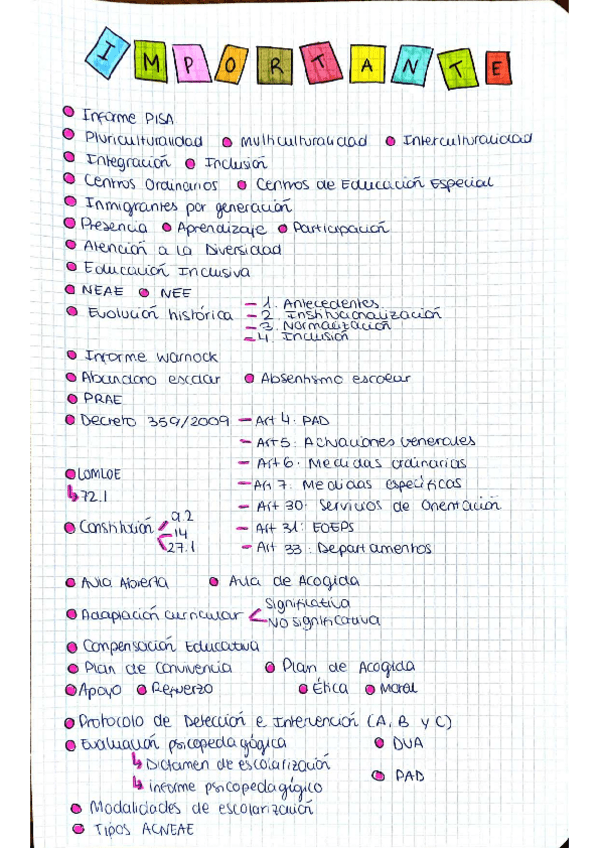 IMPORTANTE
Informe PISA
Pluriculturalidad Multiculturalidad Interculturalidad
Integración Inclusión
Centros Ordinarios Centros de Educación Especial
Inmigrantes por generación
Presencia Aprendizaje Participación
Atención a la Diversidad
Educación Inclusiva
NEAE NEE
Evolución histórica - 1. Antecedentes
- 2. Institucionalización
- 3. Normalización
- 4. Inclusión
Informe Warnock
Abandono escolar Absentismo escolar
PRAE
Decreto 359/2009 - Art 4. PAD
- Art 5. Actuaciones Generales
- Art 6. Medidas ordinarias
LOMLOE - Art 7. Medidas específicas
↳ 72.1 - Art 30. Servicios de Orientación
Constitución 9.2 - Art 31: EOEPS
14
27.1 - Art 33: Departamentos
Aula Abierta Aula de Acogida
Adaptación curricular < Significativa
No significativa
Compensación Educativa
Plan de Convivencia Plan de Acogida
Apoyo Refuerzo Ética Moral
Protocolo de Detección e Intervención (A, B y C)
Evaluación psicopedagógica DUA
↳ Dictamen de escolarización
↳ informe psicopedagógico PAD
Modalidades de escolarización
Tipos ACNEAE